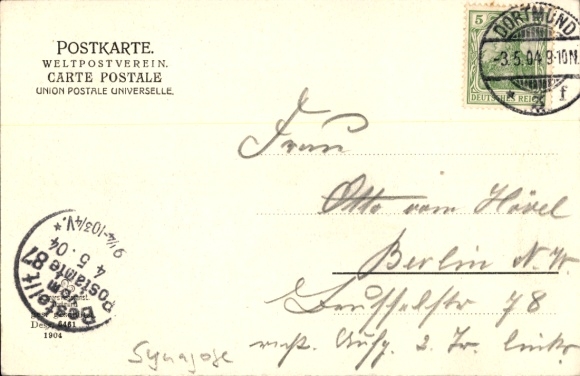 POSTKARTE.
WELTPOSTVEREIN.
CARTE POSTALE
UNION POSTALE UNIVERSELLE.
5
DEUTSCHES REICH
DORTMUND
-3.5.04.9-10N.
* 2 f
Frau
Otto vom Hövel
Berlin N.W.
Brusselstr 78
Aufg. 2. Tr. links
Bestellt
vom
Postamte 87
4.5.04
9 1/4-10 3/4 V.*
6461
1904
Synagoge